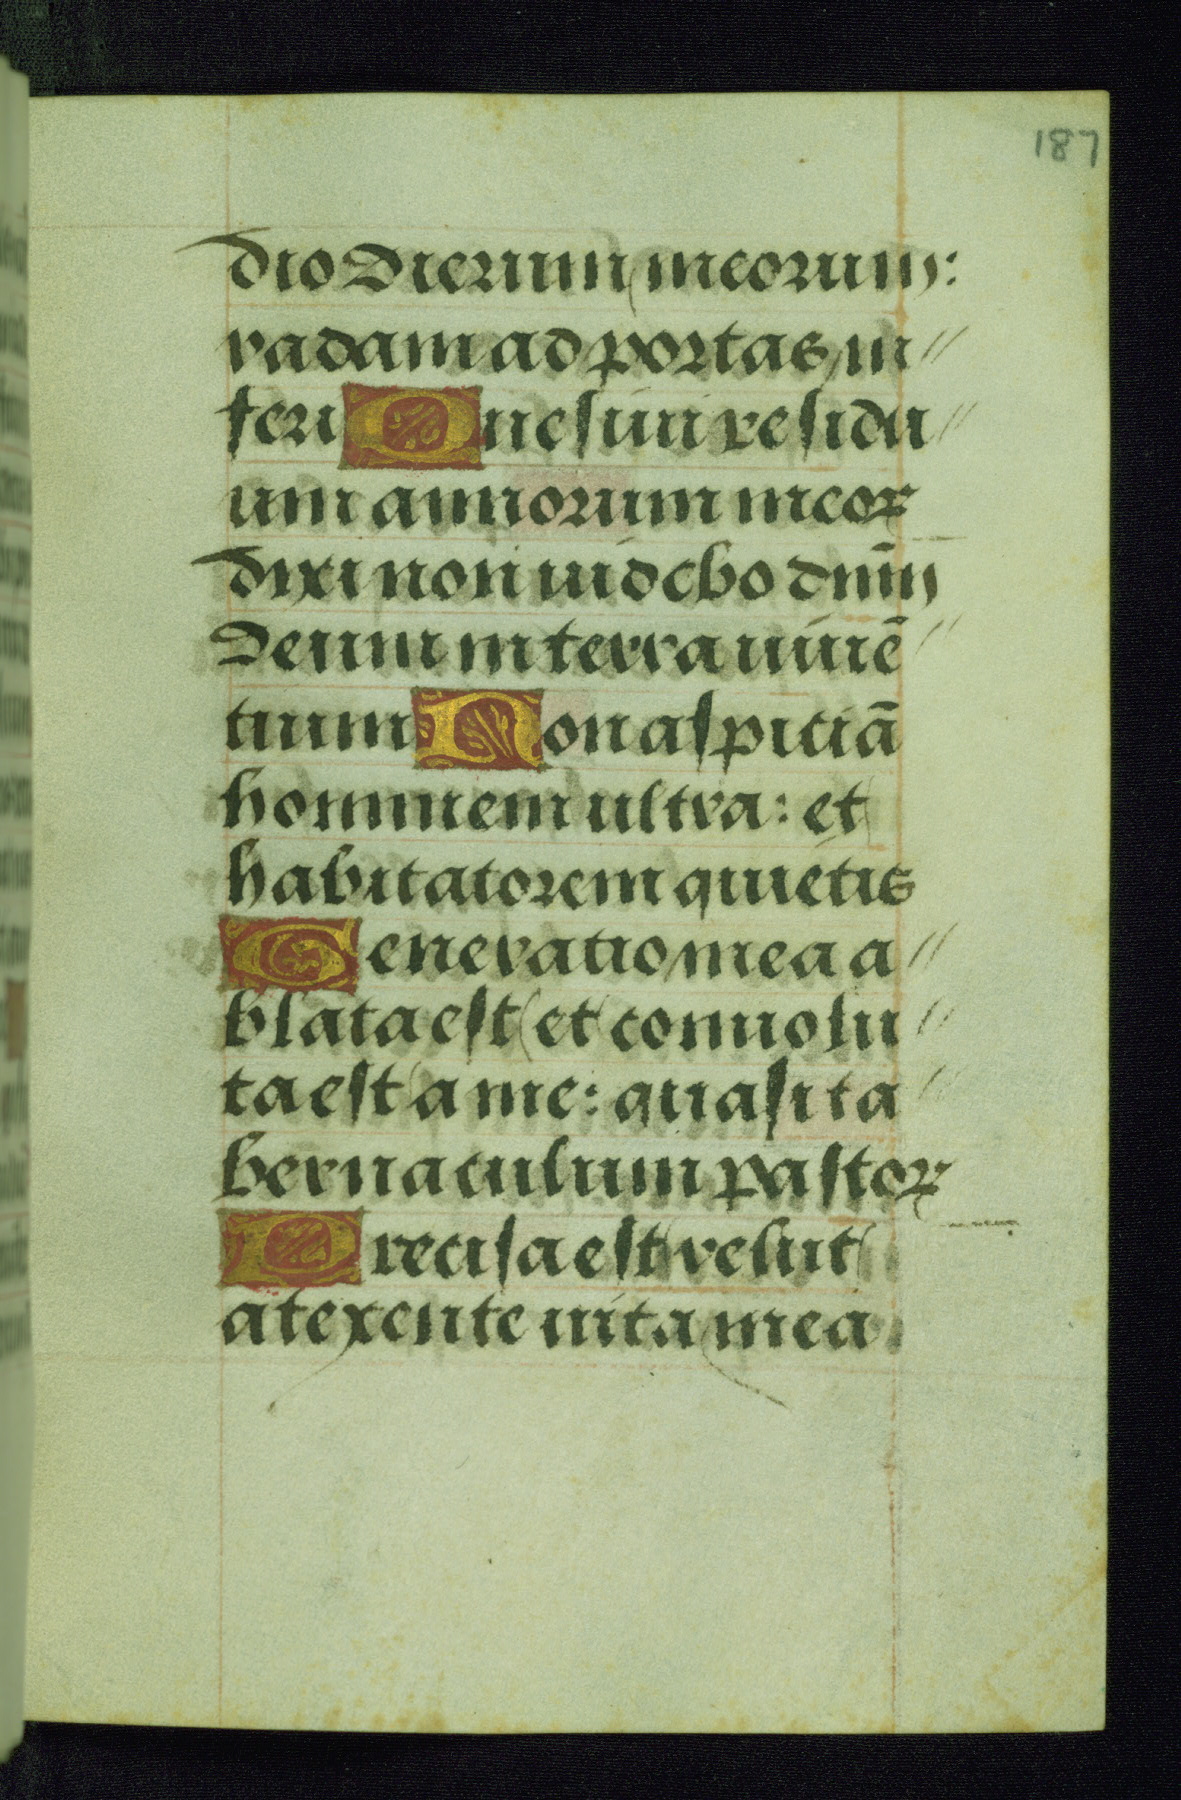 187
dio dierum meorum:
vadam ad portas in//
feri Quesiui residu//
um annorum meoꝝ
dixi non uidebo dn̄m
deum in terra uiuē//
tium Non aspiciā
hominem ultra: et
habitatorem quietis
Generatio mea a//
blata est et conuolu//
ta est a me: quasi ta//
bernaculum pastoꝝ
Precisa est velut
a texente uita mea